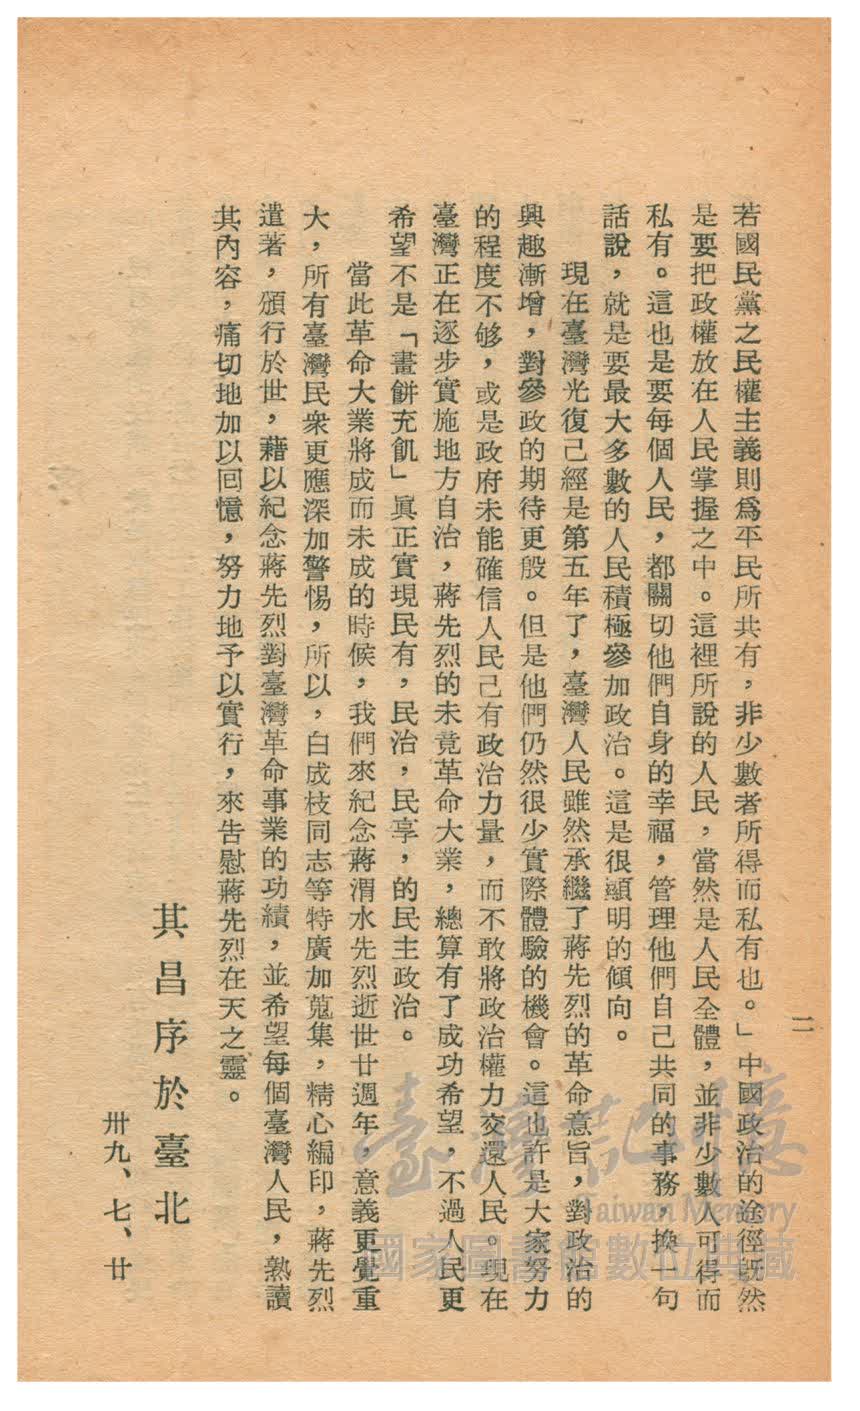 二
若國民黨之民權主義則為平民所共有，非少數者所得而私有也。」中國政治的途徑既然
是要把政權放在人民掌握之中。這裡所說的人民，當然是人民全體，並非少數人可得而
私有。這也是要每個人民，都關切他們自身的幸福，管理他們自己共同的事務，換一句
話說，就是要最大多數的人民積極參加政治。這是很顯明的傾向。
現在臺灣光復己經是第五年了，臺灣人民雖然承繼了蔣先烈的革命意旨，對政治的
興趣漸增，對參政的期待更殷。但是他們仍然很少實際體驗的機會。這也許是大家努力
的程度不够，或是政府未能確信人民己有政治力量，而不敢將政治權力交還人民。現在
臺灣正在逐步實施地方自治，蔣先烈的未竟革命大業，總算有了成功希望，不過人民更
希望不是「畫餅充飢」眞正實現民有，民治，民享，的民主政治。
當此革命大業將成而未成的時候，我們來紀念蔣渭水先烈逝世廿週年，意義更覺重
大，所有臺灣民衆更應深加警惕，所以，白成枝同志等特廣加蒐集，精心編印，蔣先烈
遺著，頒行於世，藉以紀念蔣先烈對臺灣革命事業的功績，並希望每個臺灣人民，熟讀
其內容，痛切地加以回憶，努力地予以實行，來告慰蔣先烈在天之靈。
其昌序於臺北
卅九、七、廿
臺灣記憶
Taiwan Memory
國家圖書館數位典藏